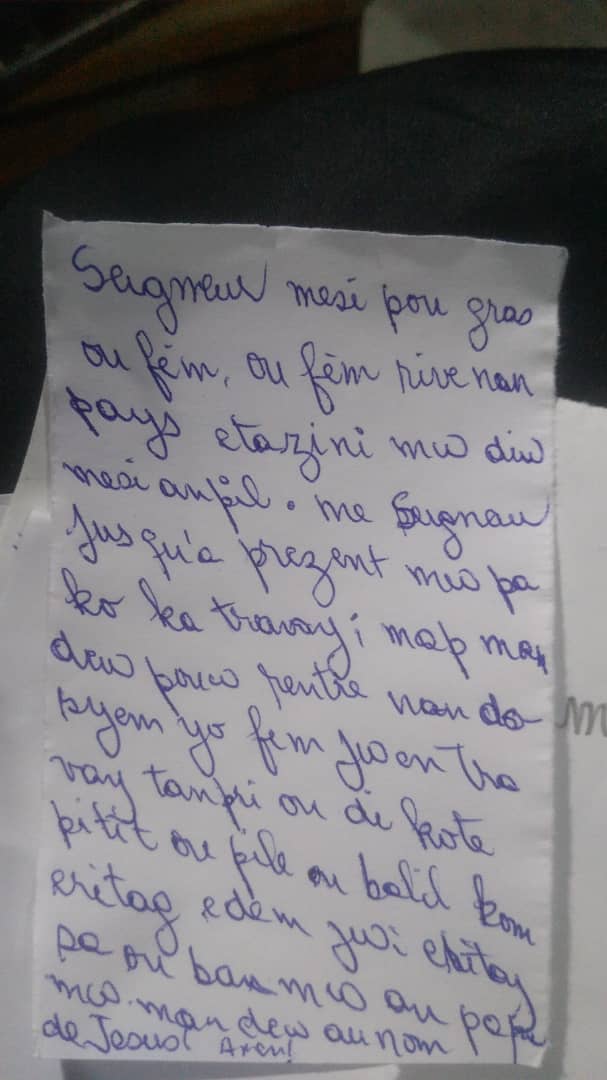 Seigneur mesi pou gras
ou fèm, ou fèm rive nan
pays etazini mw diw
mesi anpil. me Seigneur
jusqu'a prezent mw pa
ko ka travay; map man
dew pouw rentre nan do
syem yo fem jwen tra
vay tanpri ou di kote
pitit ou pile ou bali'd kom
eritag edem jwi eritag
pa ou ban mw ou papa
mw. man dew au nom
de Jesus! Amen!